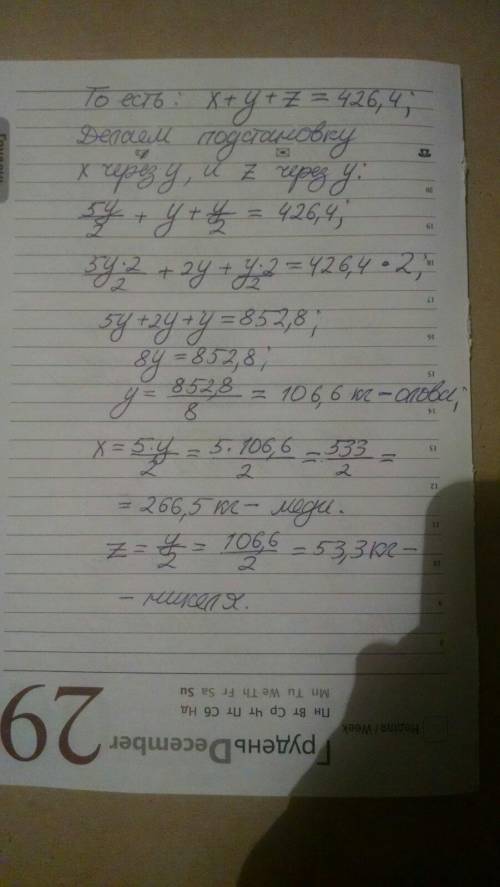 То есть: x+y+z=426,4;
Делаем подстановку
x через y, и z через y:
5y/2 + y + y/2 = 426,4;
5y·2/2 + 2y + y·2/2 = 426,4·2;
5y+2y+y=852,8;
8y=852,8;
y = 852,8/8 = 106,6 кг - олова;
x = 5·y/2 = 5·106,6/2 = 533/2 =
= 266,5 кг - меди.
z = y/2 = 106,6/2 = 53,3 кг -
- никеля.
20
19
18
17
16
15
14
13
12
11
10
9
8
29
ГруденьDecember
Пн Вт Ср Чт Пт Сб Нд
Mn Tu We Th Fr Sa Su
Неділя / Week